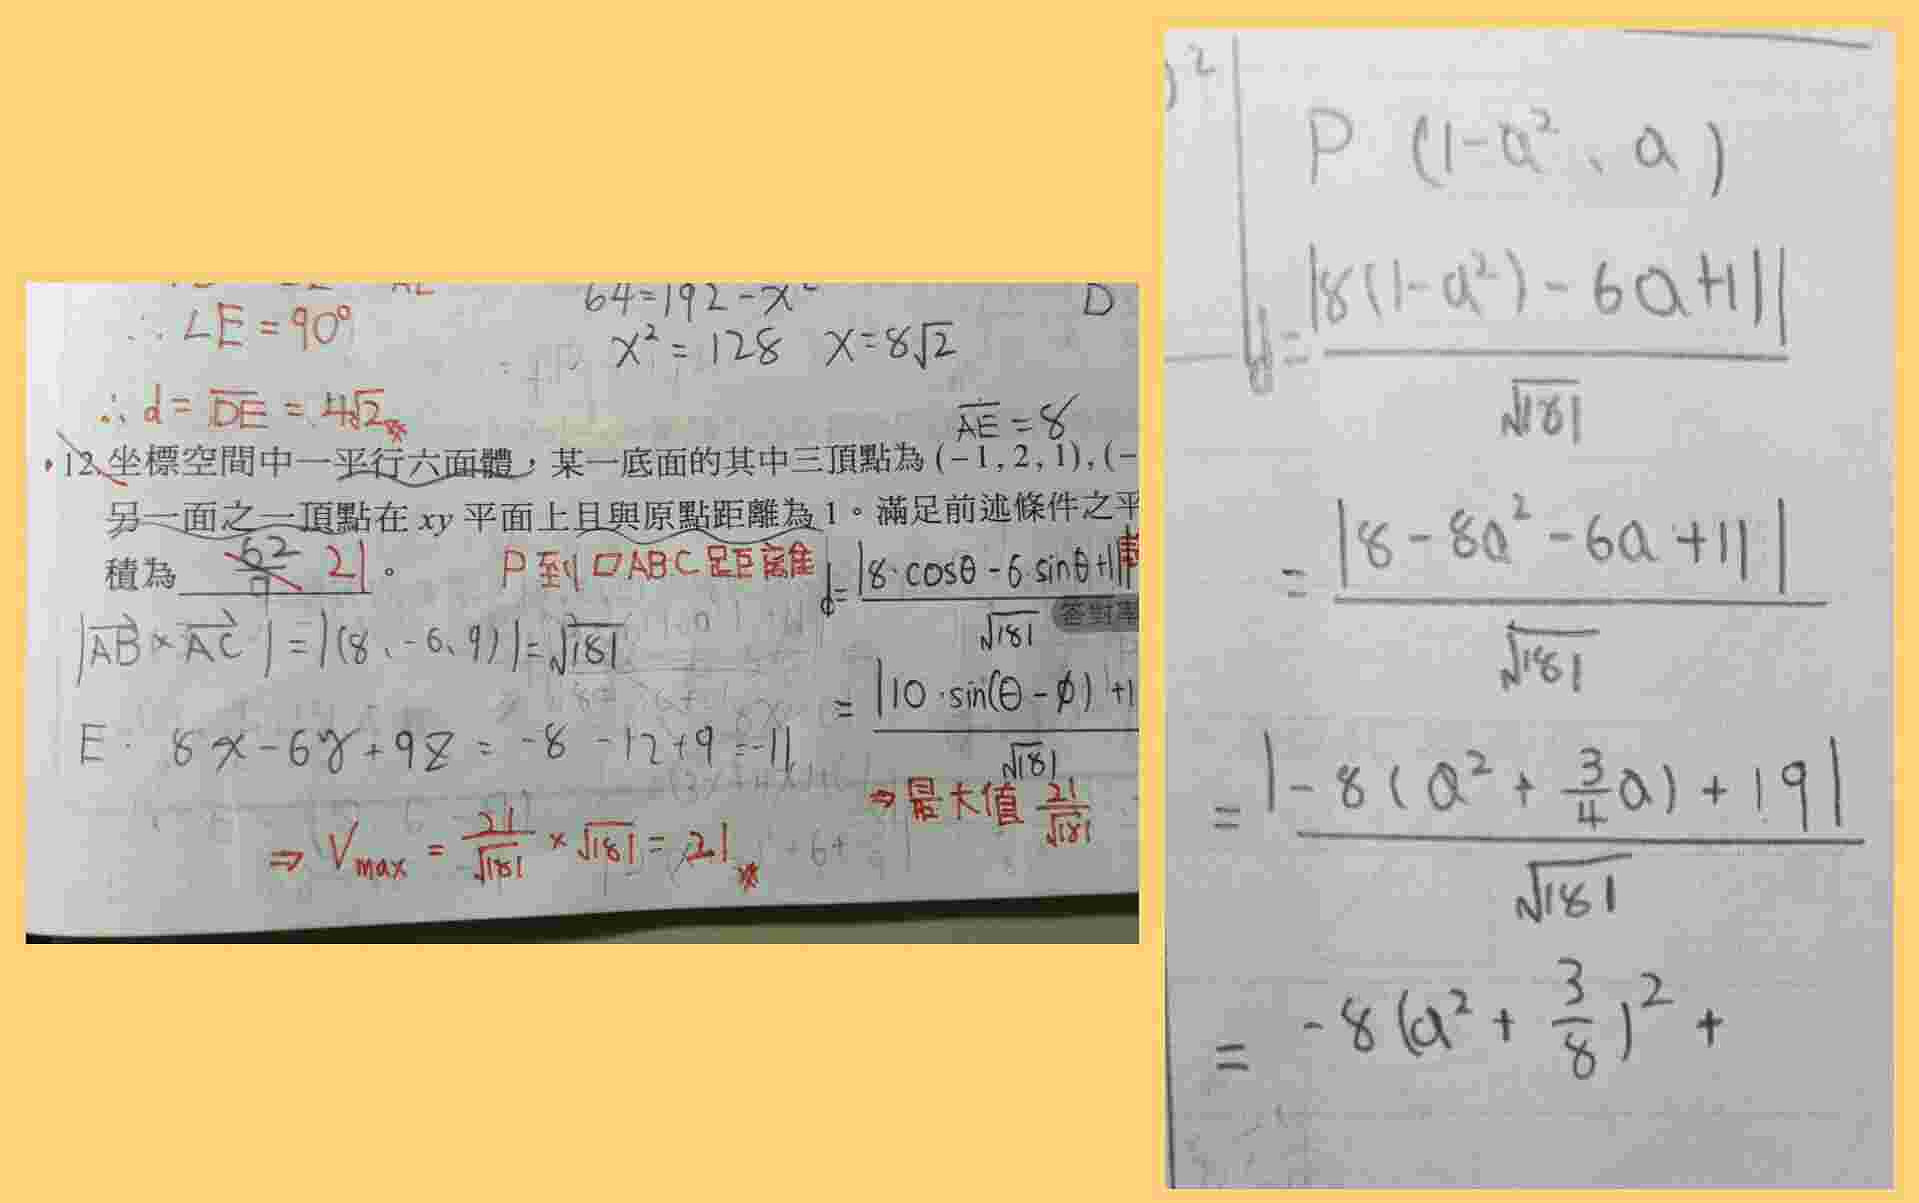 ∴ ∠E = 90°
64 = 192 - x²
D
x² = 128 x = 8√2
∴ d = DE = 4√2
AE = 8
12. 坐標空間中一平行六面體，某一底面的其中三頂點為 (-1, 2, 1), (-
另一面之一頂點在 xy 平面上且與原點距離為 1。滿足前述條件之平
積為 21 。
P 到 ▱ABC 距離
d = |8·cosθ - 6·sinθ + 11|
√181
答對率
|AB × AC| = |(8、-6、9)| = √181
= |10·sin(θ - φ) + 1
√181
E: 8x - 6y + 9z = -8 - 12 + 9 = -11
⇒ 最大值 21/√181
⇒ Vmax = 21/√181 × √181 = 21
P (1-a²、a)
d = |8(1-a²) - 6a + 11|
√181
= |8 - 8a² - 6a + 11|
√181
= |-8(a² + 3/4 a) + 19|
√181
= -8(a² + 3/8)² +